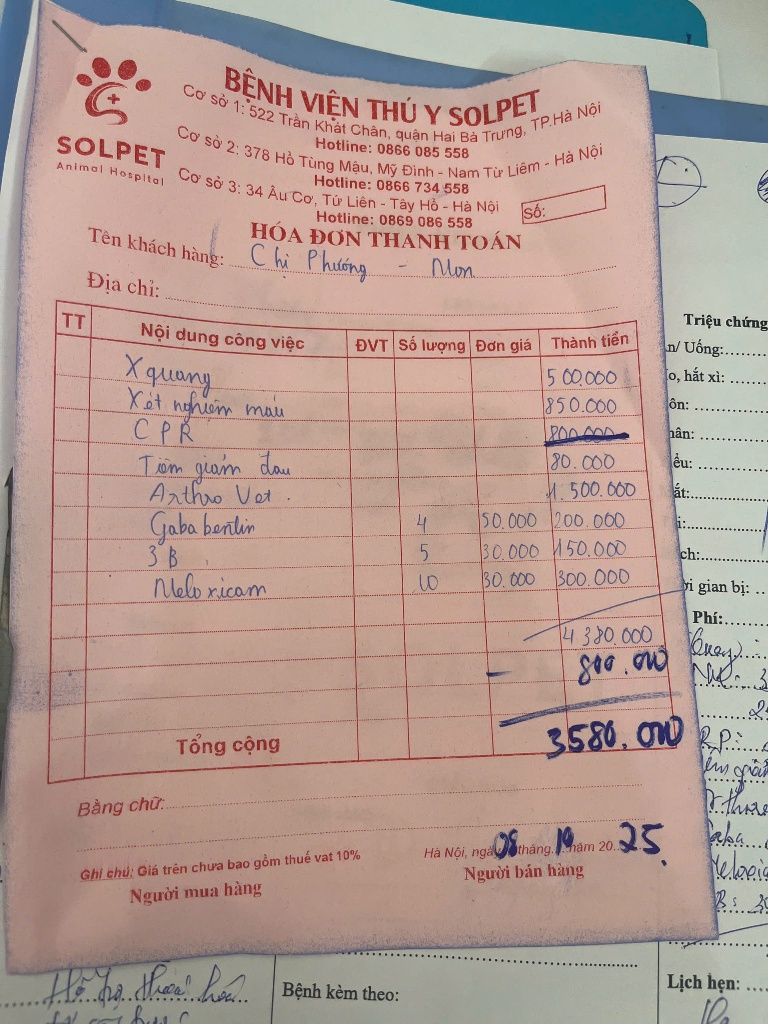 BỆNH VIỆN THÚ Y SOLPET
Cơ sở 1: 522 Trần Khát Chân, quận Hai Bà Trưng, TP.Hà Nội
Hotline: 0866 085 558
Cơ sở 2: 378 Hồ Tùng Mậu, Mỹ Đình - Nam Từ Liêm - Hà Nội
Hotline: 0866 734 558
Cơ sở 3: 34 Âu Cơ, Tứ Liên - Tây Hồ - Hà Nội
Hotline: 0869 086 558
SOLPET
Animal Hospital
Số:
HÓA ĐƠN THANH TOÁN
Tên khách hàng: Chị Phương - Mon
Địa chỉ:
TT Nội dung công việc ĐVT Số lượng Đơn giá Thành tiền
X quang 500.000
Xét nghiệm máu 850.000
CPR 800.000
Tiêm giảm đau 80.000
Arthro Vet. 1.500.000
Gababentin 4 50.000 200.000
3B 5 30.000 150.000
Meloxicam 10 30.000 300.000
4380.000
- 800.000
Tổng cộng 3580.000
Bằng chữ:
Ghi chú: Giá trên chưa bao gồm thuế vat 10%
Hà Nội, ngày 08 tháng 10 năm 2025
Người mua hàng Người bán hàng
Triệu chứng
n/ Uống:
o, hắt xì:
ôn:
hân:
ểu:
ắt:
i:
ch:
ời gian bị:
Phí:
Bệnh kèm theo:
Lịch hẹn: